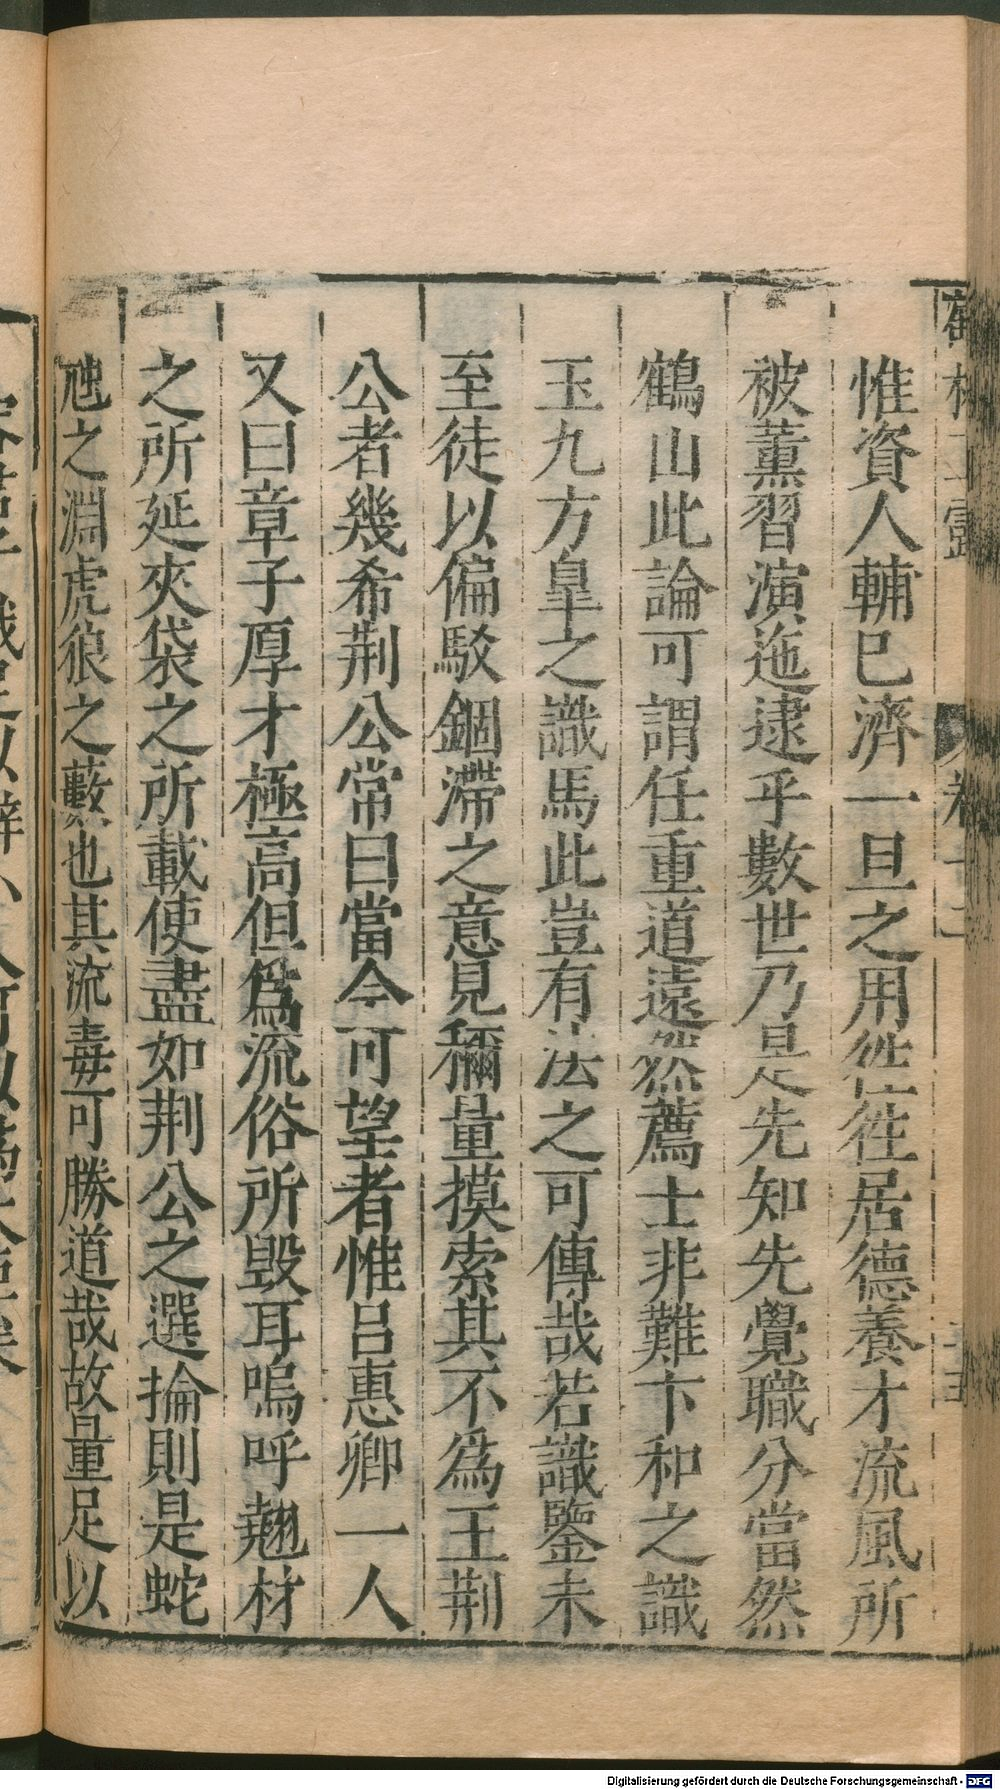 惟資人輔已濟一旦之用徃徃居德養才流風所
被薰習演迤逮乎數世乃是先知先覺職分當然
鶴山此論可謂任重道遠然薦士非難卞和之識
玉九方臯之識馬此豈有法之可傳哉若識鑒未
至徒以偏駁錮滯之意見稱量摸索其不為王荆
公者幾希荆公常曰當今可望者惟呂惠卿一人
又曰章子厚才極高但爲流俗所毁耳嗚呼翹材
之所延夾袋之所載使盡如荆公之選掄則是蛇
虺之淵虎狼之藪也其流毒可勝道哉故量足以
Digitalisierung gefördert durch die Deutsche Forschungsgemeinschaft - DFG